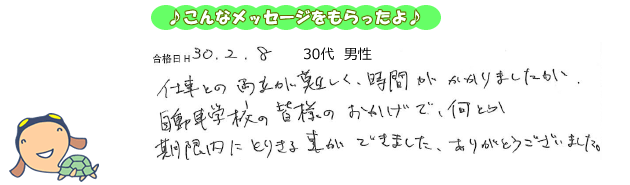 ♪こんなメッセージをもらったよ♪
合格日H30.2.8 30代 男性
仕事との両立が難しく、時間がかかりましたが、
自動車学校の皆様のおかげで、何とか
期限内にとりきる事ができました、ありがとうございました。